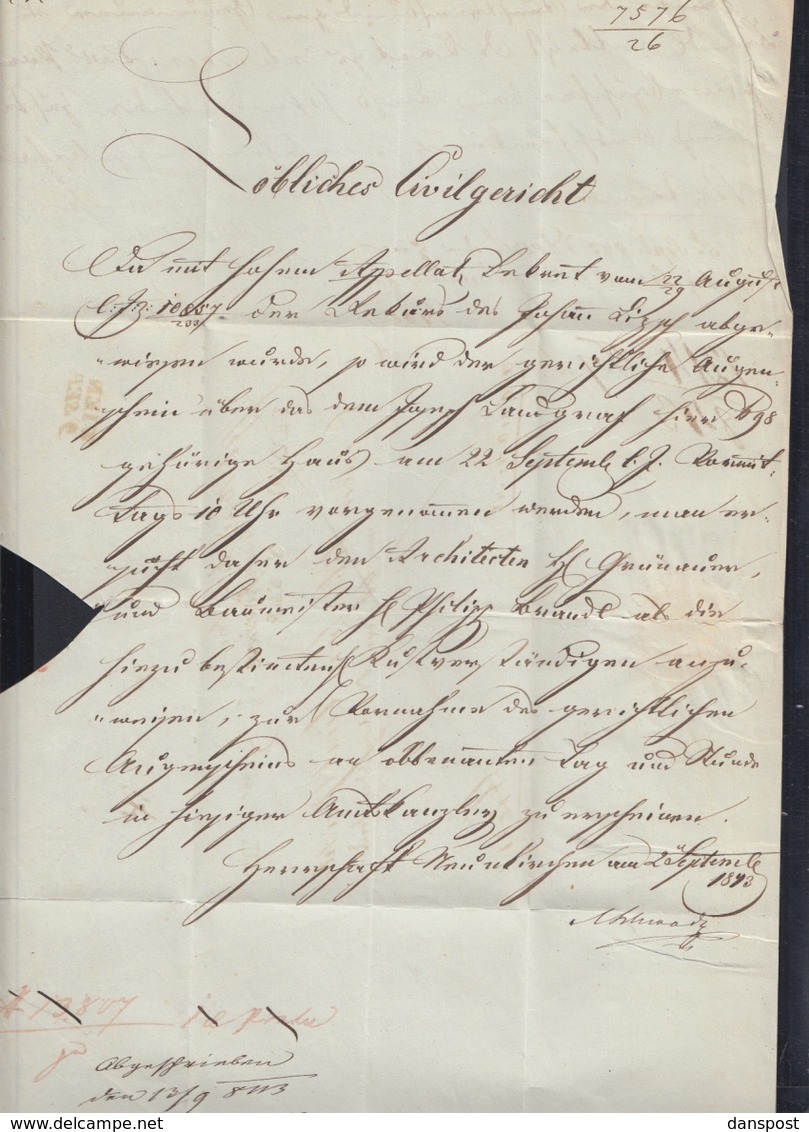 7576
26
Löbliches Civilgericht
Da mit hohem Appellat. Dekret vom 22/29 August
l. J. Z. 10857 der Rekurs des Johann abge-
wiesen wurde, so wird der gerichtliche Augen-
schein über das dem Joseph Landgraf hier
gehörige Haus am 22 Septemb l. J. Vormit-
tags 10 Uhr vorgenommen werden, man er-
sucht daher den Architecten H Grünauer,
und Baumeister H Philipp Brandl als die
hiezu bestimten Kustverständigen anzu-
weisen, zur Vornahme des gerichtlichen
Augenscheins an obbenannten Tag und Stunde
in hiesiger Amtskanzley zu erscheinen.
Herrschaft Neunkirchen am 2 Septemb
1843
Abgeschrieben
den 13/9 843
danspost